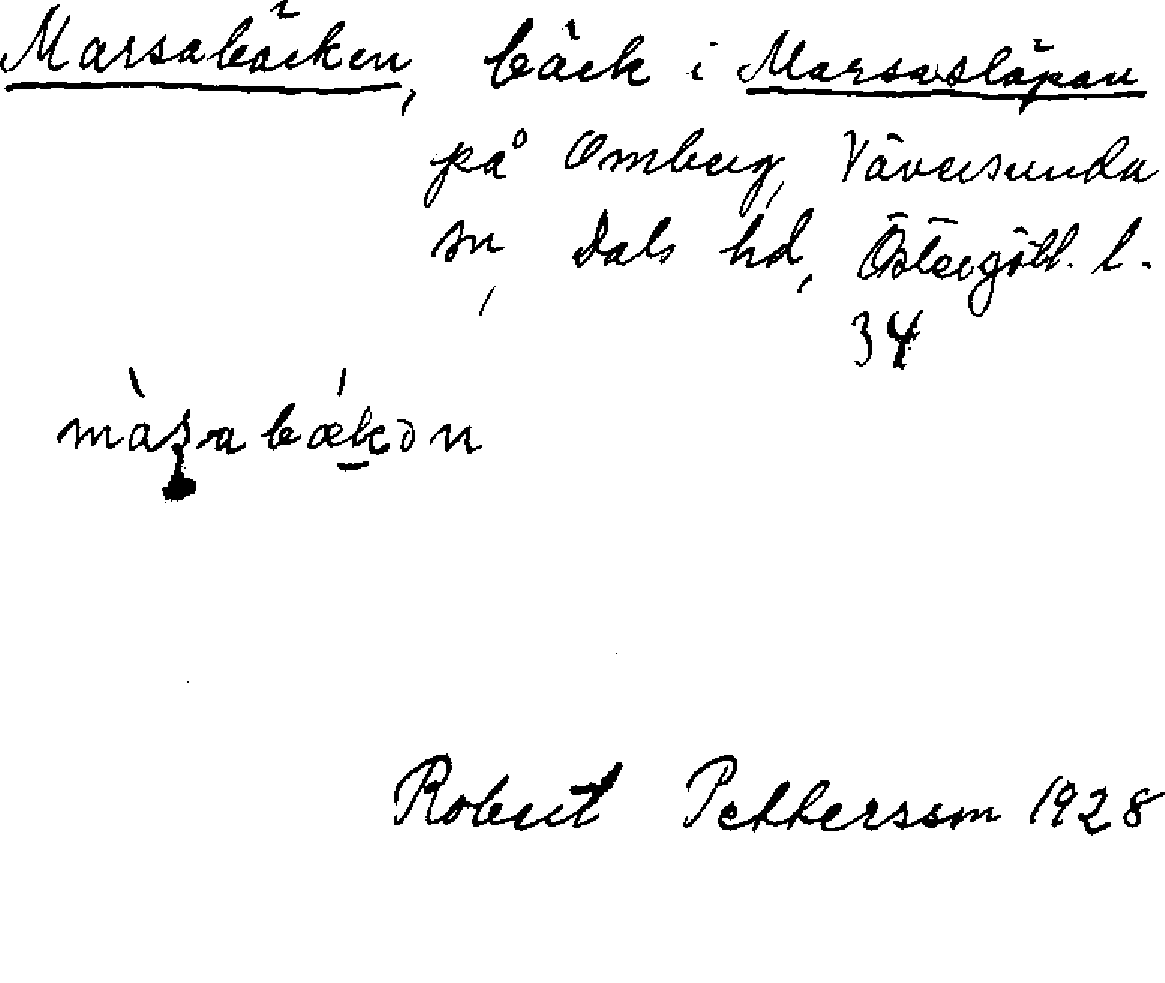 Marsabäcken, bäck i Marsasläpan
på Omberg, Väversunda
sn, Dals hd, Östergötl. l.
34
màʂabǽkən
Robert Pettersson 1928